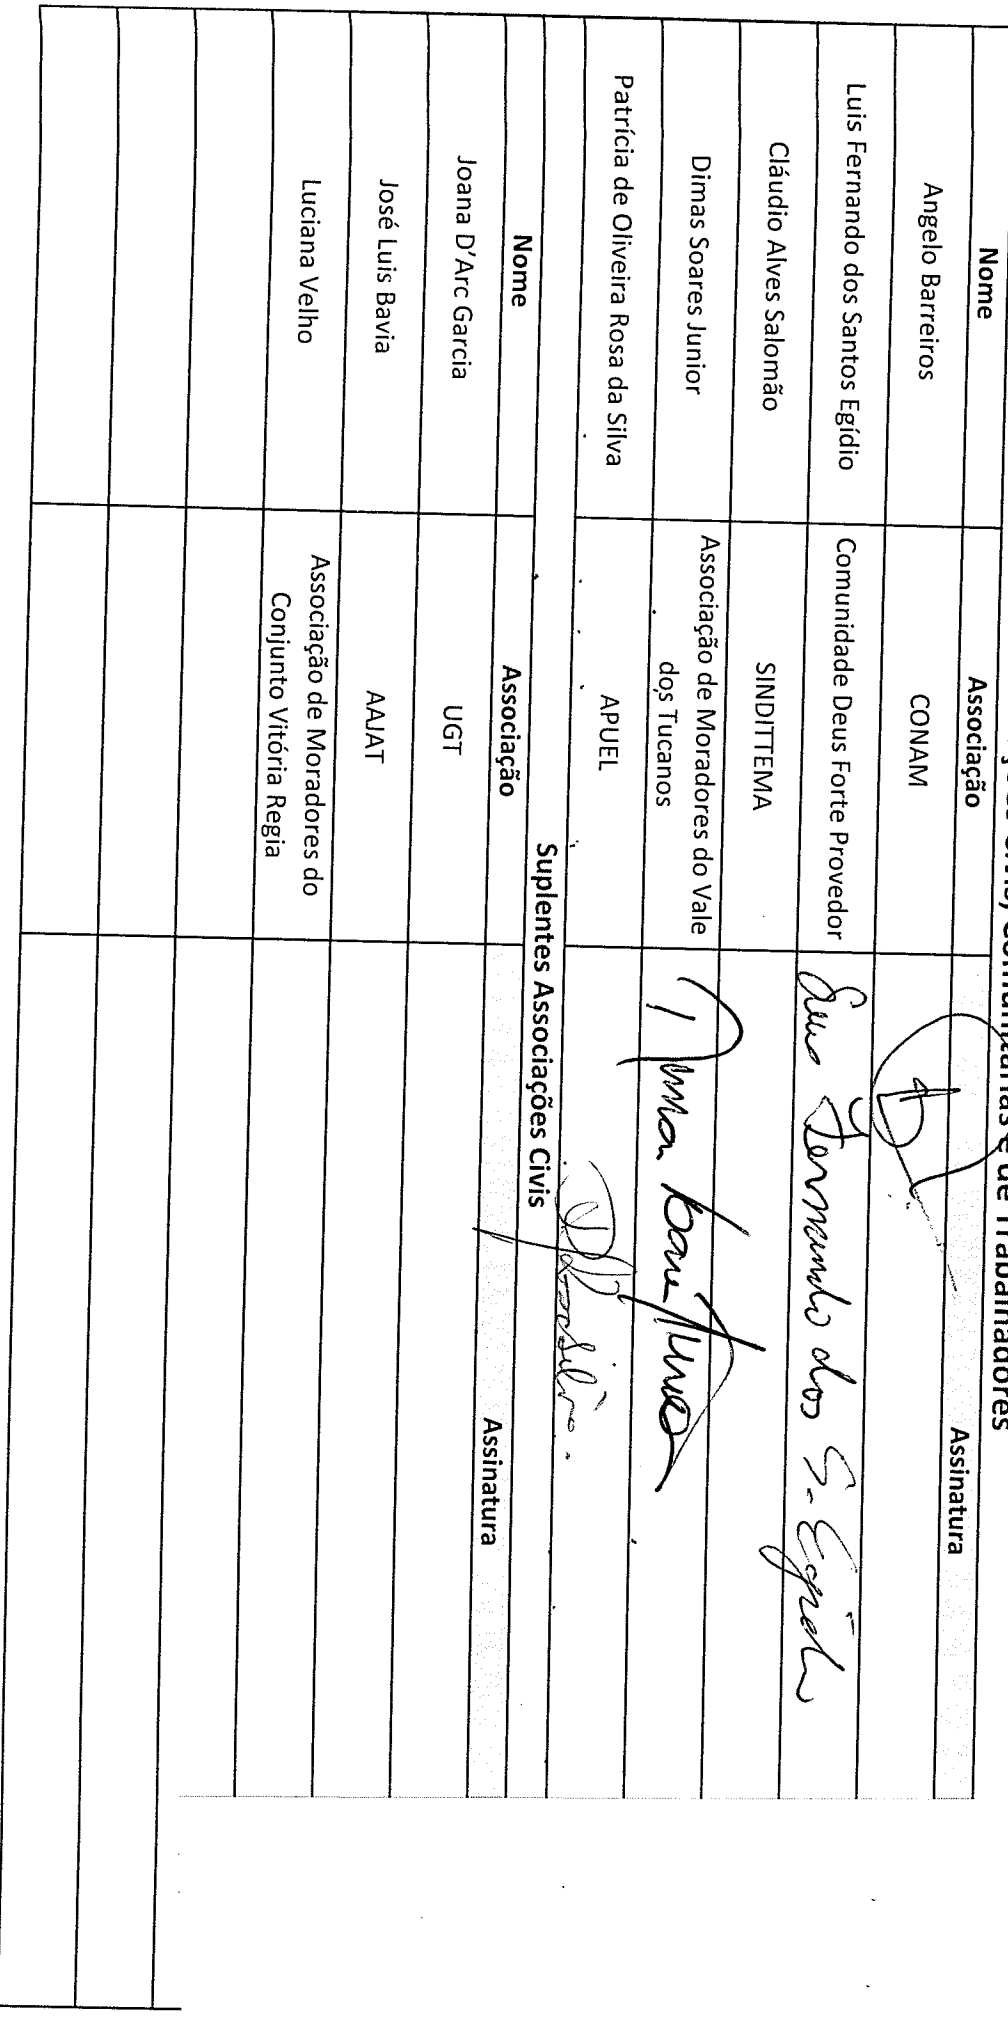 Comunitárias e de Trabalhadores
Nome Associação Assinatura
Angelo Barreiros CONAM
Luis Fernando dos Santos Egídio Comunidade Deus Forte Provedor Luis Fernando dos S. Egídio
Cláudio Alves Salomão SINDITTEMA
Dimas Soares Junior Associação de Moradores do Vale
dos Tucanos
Patrícia de Oliveira Rosa da Silva APUEL
Suplentes Associações Civis
Nome Associação Assinatura
Joana D'Arc Garcia UGT
José Luis Bavia AAJAT
Luciana Velho Associação de Moradores do
Conjunto Vitória Regia